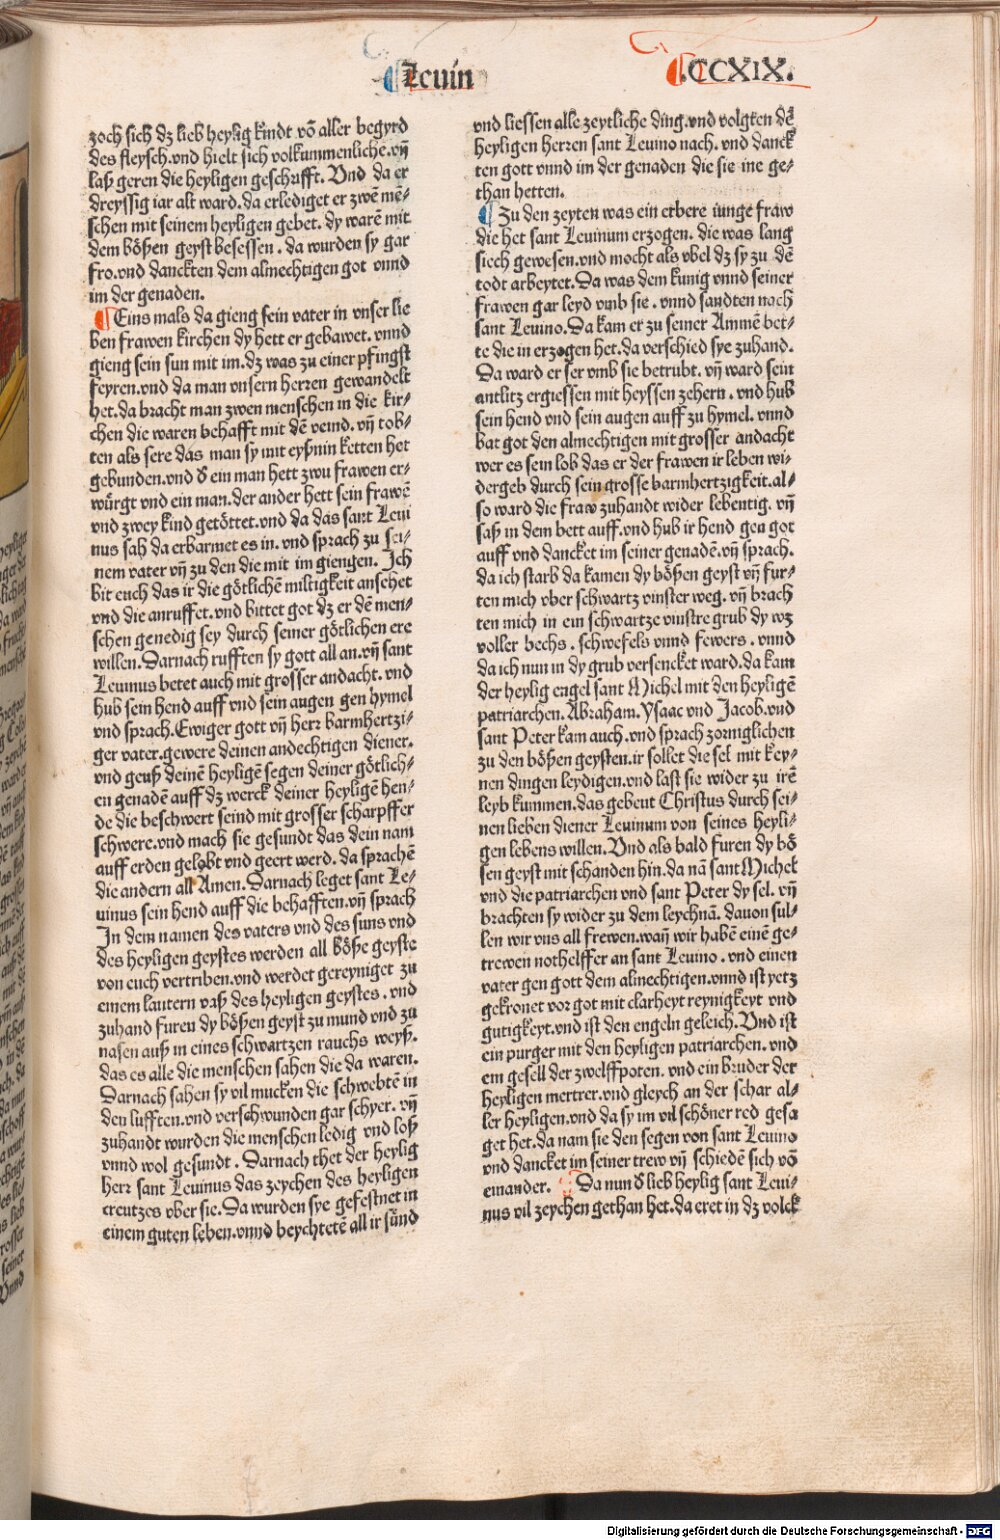 Leuin
.CCXIX.
zoch sich dz lieb heylig kindt võ aller begyrd
des fleysch.vnd hielt sich volkummenliche.vñ
laß geren die heyligen geschrifft. Vnd da er
dreyssig iar alt ward.da erlediget er zwẽ mẽ-
schen mit seinem heyligen gebet. dy warẽ mit
dem bößen geyst besessen . da wurden sy gar
fro.vnd danckten dem almechtigen got vnnd
im der genaden.
Eins mals da gieng sein vater in vnser lie
ben frawen kirchen dy hett er gebawet. vnnd
gieng sein sun mit im.dz was zu einer pfingst
feyren.vnd da man vnsern herren gewandelt
het.da bracht man zwen menschen in die kir-
chen die waren behafft mit dẽ veind. vñ tob-
ten als sere das man sy mit eyßnin ketten het
gebunden.vnd d̕ ein man hett zwu frawen er-
würgt vnd ein man.der ander hett sein frawẽ
vnd zwey kind getöttet.vnd da das sant Leui
nus sah da erbarmet es in. vnd sprach zu sei-
nem vater vñ zu den die mit im giengen. Ich
bit euch das ir die götlichẽ miltigkeit ansehet
vnd die anruffet.vnd bittet got dz er dẽ men-
schen genedig sey durch seiner götlichen ere
willen. Darnach rufften sy gott all an.vñ sant
Leuinus betet auch mit grosser andacht. vnd
hub sein hend auff vnd sein augen gen hymel
vnd sprach. Ewiger gott vñ herr barmhertzi-
ger vater.gewere deinen andechtigen diener.
vnd geuß deinẽ heyligẽ segen deiner götlich-
en genadẽ auff dz werck deiner heyligẽ hen-
de die beschwert seind mit grosser scharpffer
schwere.vnd mach sie gesundt das dein nam
auff erden gelobt vnd geert werd. da sprachẽ
die andern all Amen. Darnach leget sant Le-
uinus sein hend auff die behafften.vñ sprach
In dem namen des vaters vnd des suns vnd
des heyligen geystes werden all böße geyste
von euch vertriben.vnd werdet gereyniget zu
einem lautern vaß des heyligen geystes . vnd
zuhand furen dy bößen geyst zu mund vnd zu
nasen auß in eines schwartzen rauchs weyß.
das es alle die menschen sahen die da waren.
Darnach sahen sy vil mucken die schwebtẽ in
den lufften.vnd verschwunden gar schyer. vñ
zuhandt wurden die menschen ledig vnd loß
vnnd wol gesundt . Darnach thet der heylig
herr sant Leuinus das zeychen des heyligen
creutzes vber sie. Da wurden sye gefestnet in
einem guten leben.vnnd beychtetẽ all ir sünd
vnd liessen alle zeytliche ding.vnd volgten dẽ
heyligen herren sant Leuino nach. vnd danck
ten gott vnnd im der genaden die sie ine ge-
than hetten.
Zu den zeyten was ein erbere iunge fraw
die het sant Leuinum erzogen. die was lang
siech gewesen.vnd mocht als vbel dz sy zu dẽ
todt arbeytet. Da was dem kunig vnnd seiner
frawen gar leyd vmb sie . vnnd sandten nach
sant Leuino. Da kam er zu seiner Ammẽ bet-
te die in erzogen het.da verschied sye zuhand.
Da ward er ser vmb sie betrubt. vñ ward sein
antlitz ergiessen mit heyssen zehern . vnd hub
sein hend vnd sein augen auff zu hymel. vnnd
bat got den almechtigen mit grosser andacht
wer es sein lob das er der frawen ir leben wi-
dergeb durch sein grosse barmhertzigkeit.al-
so ward die fraw zuhandt wider lebentig. vñ
saß in dem bett auff.vnd hub ir hend gen got
auff vnd dancket im seiner genadẽ.vñ sprach.
da ich starb da kamen dy bößen geyst vñ fur-
ten mich vber schwartz vinster weg. vñ brach
ten mich in ein schwartze vinstre grub dy wz
voller bechs . schwefels vnnd fewers . vnnd
da ich nun in dy grub versencket ward.da kam
der heylig engel sant Michel mit den heyligẽ
patriarchen. Abraham. Ysaac vnd Jacob.vnd
sant Peter kam auch.vnd sprach zorniglichen
zu den bößen geysten.ir sollet die sel mit key-
nen dingen leydigen.vnd last sie wider zu irẽ
leyb kummen.das gebeut Christus durch sei-
nen lieben diener Leuinum von seines heyli-
gen lebens willen. Vnd als bald furen dy bö
sen geyst mit schanden hin.da nã sant Michel
vnd die patriarchen vnd sant Peter dy sel. vñ
brachten sy wider zu dem leychnã. dauon sul-
len wir vns all frewen.wañ wir habẽ einẽ ge-
trewen nothelffer an sant Leuino . vnd einen
vater gen gott dem almechtigen.vnnd ist yetz
gekronet vor got mit clarheyt reynigkeyt vnd
gutigkeyt.vnd ist den engeln geleich. Vnd ist
ein purger mit den heyligen patriarchen. vnd
ein gesell der zwelffpoten. vnd ein bruder der
heyligen mertrer.vnd gleych an der schar al-
ler heyligen.vnd da sy im vil schöner red gesa
get het.da nam sie den segen von sant Leuino
vnd dancket im seiner trew vñ schiedẽ sich võ
einander. Da nun d̕ lieb heylig sant Leui-
nus vil zeychen gethan het.da eret in dz volck
Digitalisierung gefördert durch die Deutsche Forschungsgemeinschaft - DFG